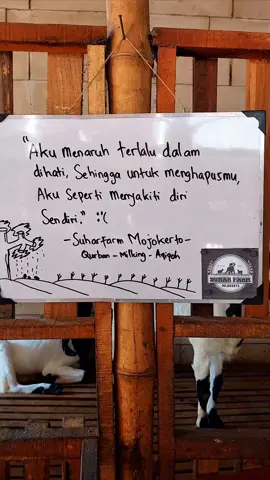 "Aku Menaruh terlalu dalam
dihati, Sehingga untuk menghapusmu,
Aku Seperti Menyakiti diri
Sendiri." :'(
-Suharfarm Mojokerto-
Qurban - Milking - Aqiqah
SUHAR FARM
MOJOKERTO